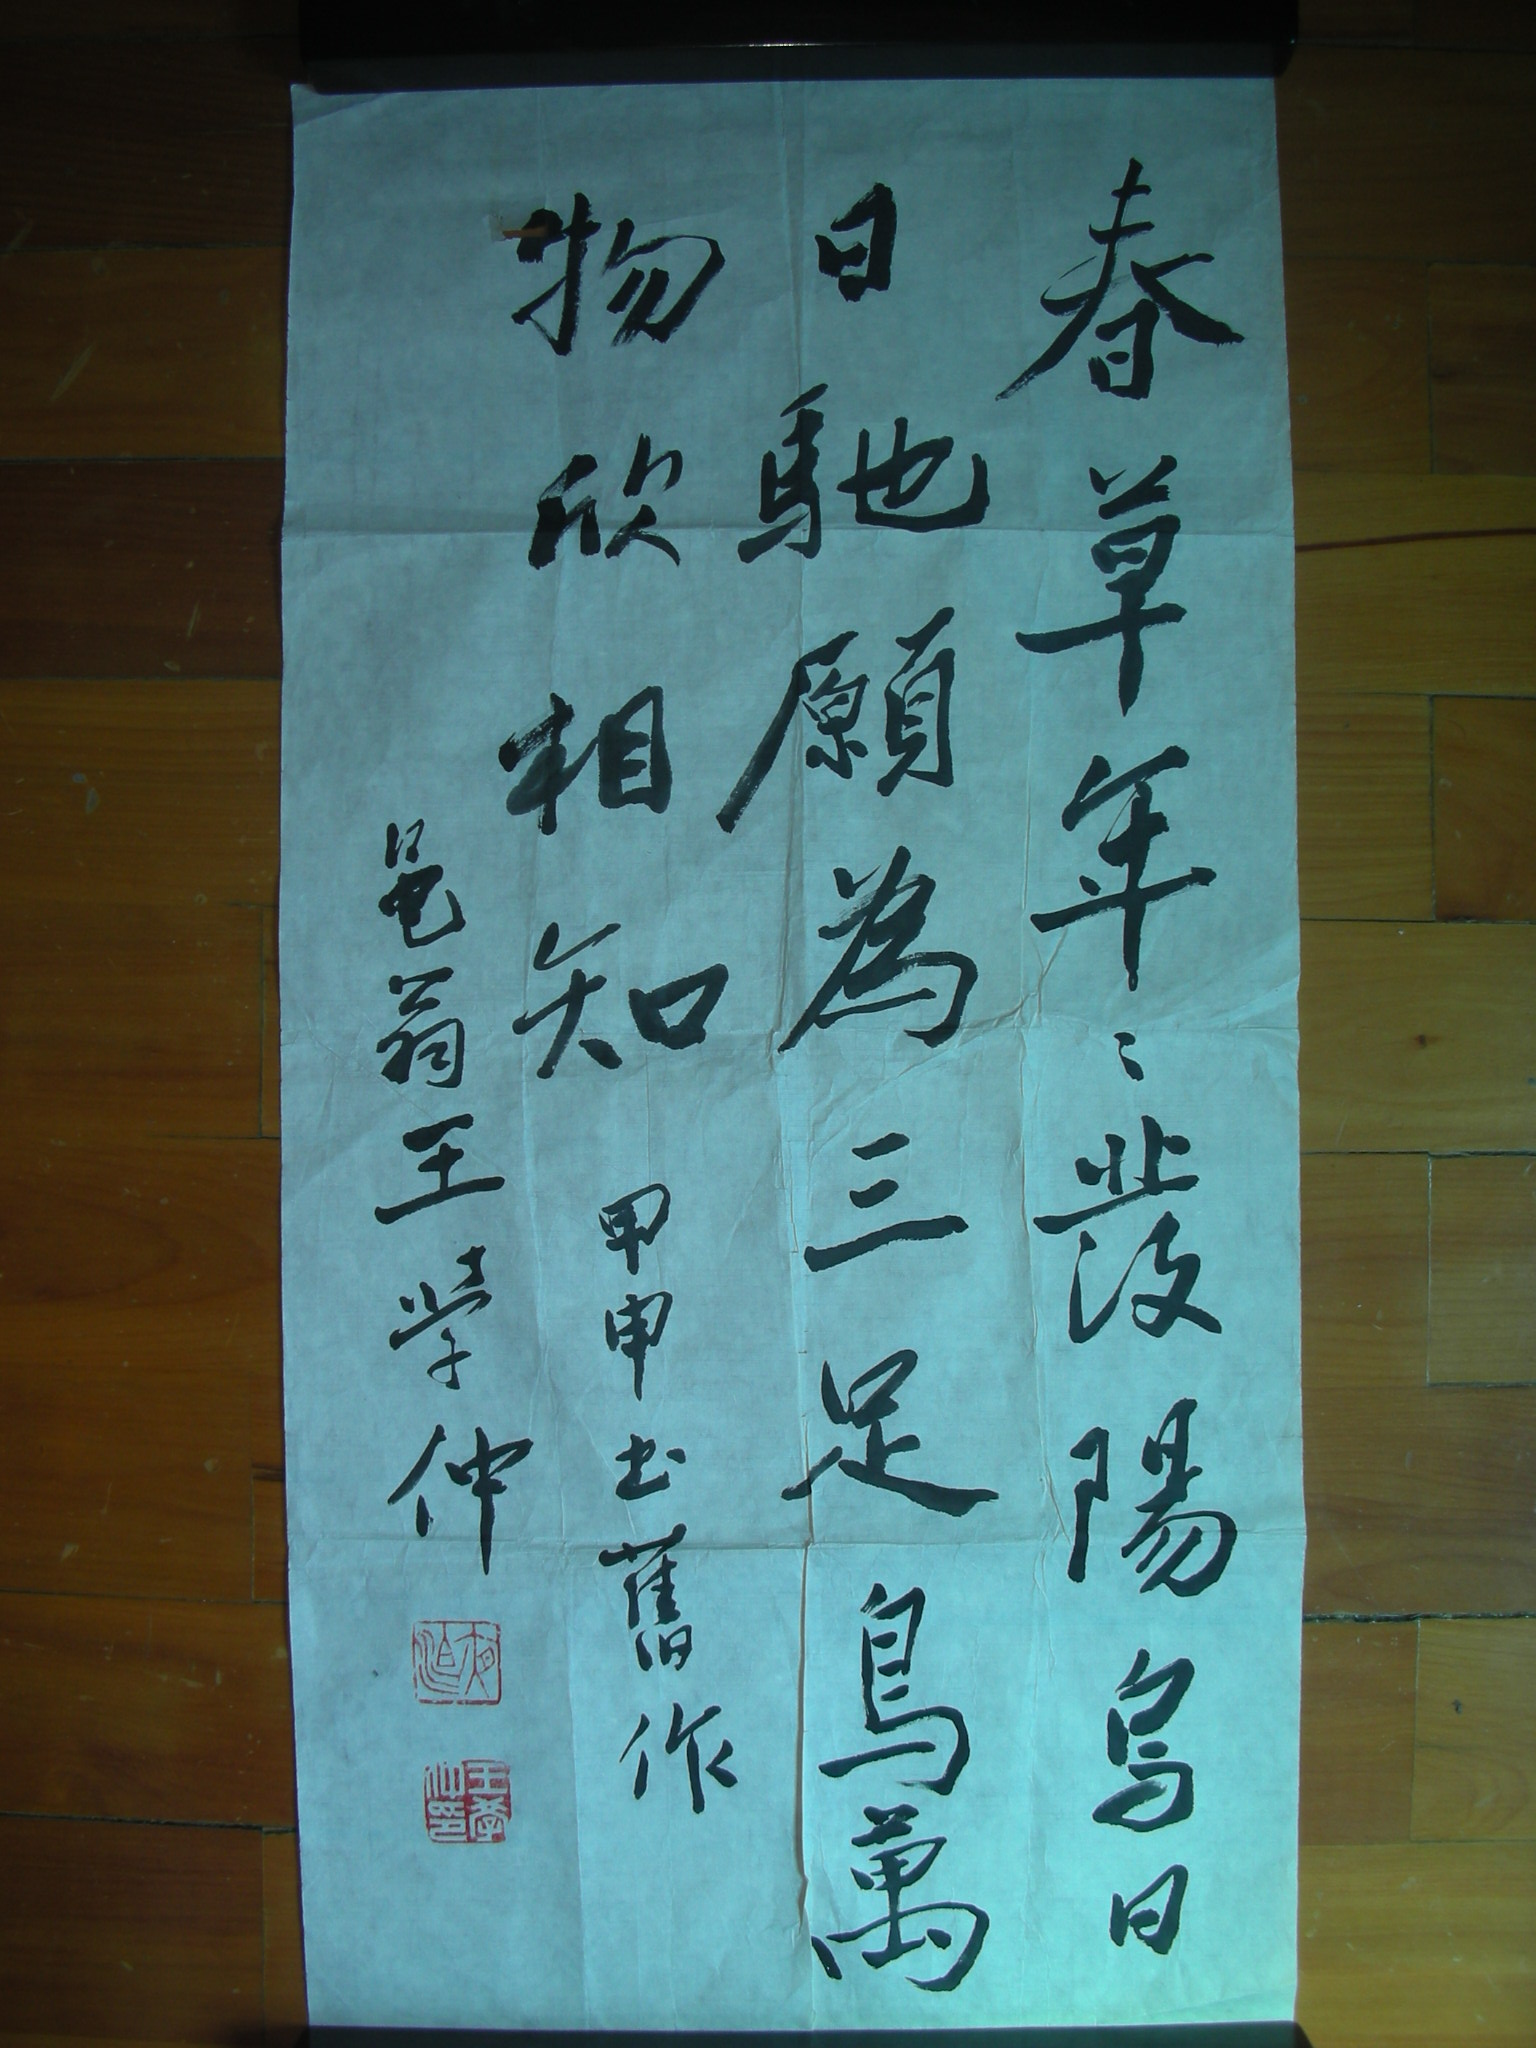 春草年〻發陽烏日
日馳願為三足烏萬
物欣相知 甲申書舊作
黽翁王學仲
王學仲印